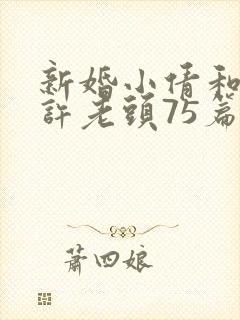 新婚小倩和
許老頭75篇
蕭四娘